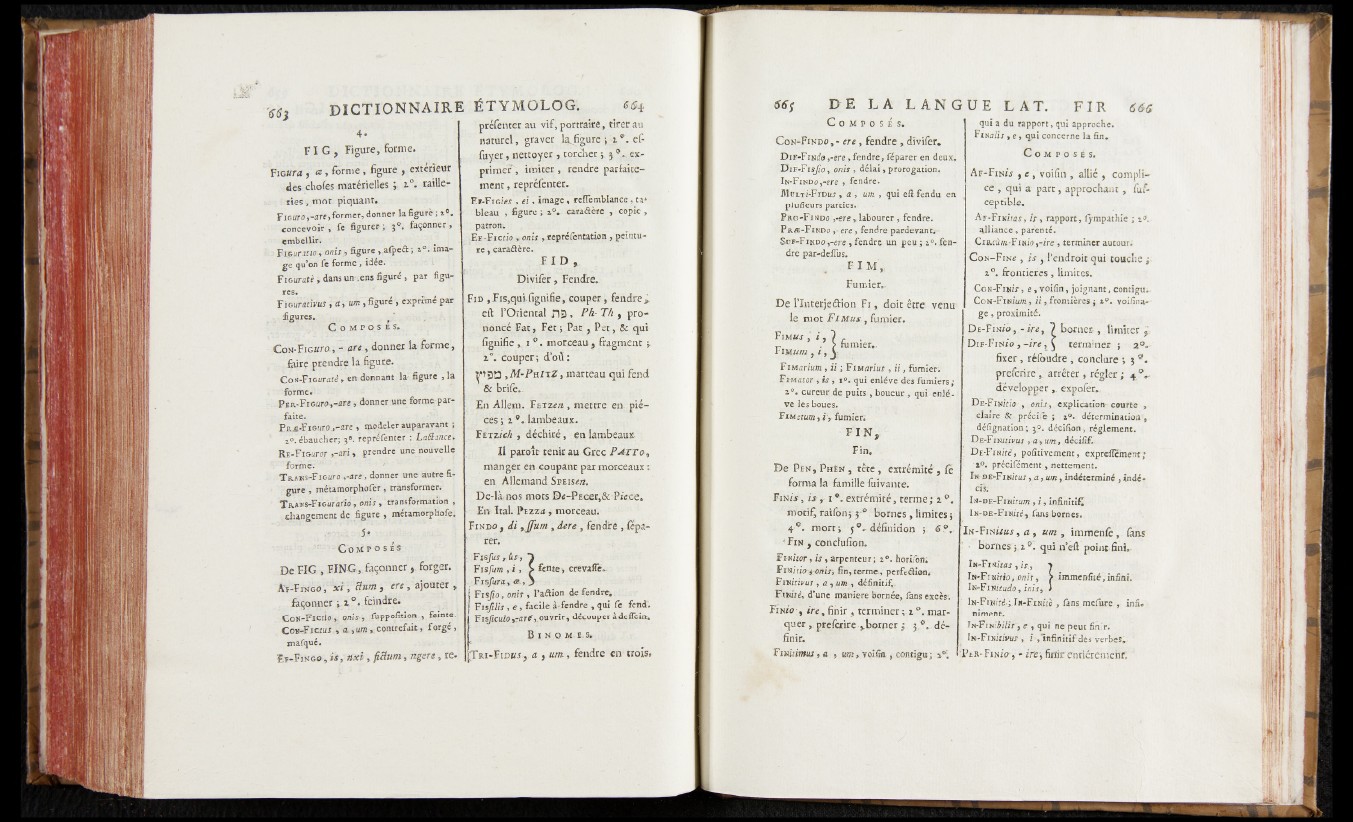 663 DICTIONNAIRE ÉTYMOLOG. 664
4.
FIG, Figure, forme.
FIGura, æ, forme, figure, extérieur
des choſes matérielles ; 2°. raille-
ries, mot piquant.
FIGuro,-are, former, donner la figure ; 2°.
concevoir, ſe figurer ; 3°. façonner,
embellir.
FIGuratio, onis, figure, aſpect ; 2°. ima-
ge qu'on ſe forme, idée.
FIGuratè, dans un ſens figuré, par figu-
res.
FIGurativus, a, um, figuré, exprimé par
figures.
COMPOSÉS.
CON-FIGuro, - are, donner la forme,
faire prendre la figure.
CON-FIGuratè, en donnant la figure, la
forme.
PER-FIGuro,-are, donner une forme par-
faite.
PRÆ-FIGuro,-are, modeler auparavant ;
2°. ébaucher; 3°. repréſenter : Lactance.
RE-FIGuror,-ari, prendre une nouvelle
forme.
TRANS-FIGuro,-are, donner une autre fi-
gure, métamorphoſer, transformer.
TRANS-FIGuratio, onis, transformation,
changement de figure, métamorphoſe.
5.
COMPOSÉS
De FIG, FING, façonner, forger.
AF-FINGo, xi, ctum, ere, ajouter,
façonner ; 2°. feindre.
CON-FICtio, onis, ſuppoſition, feinte.
CON-FICtus, a, um, contrefait, forgé,
maſqué.
EF-FINGo, is, nxi, fictum, ngere, re-
préſenter au vif, portraire, tirer au
naturel, graver la figure ; 2°. eſ-
ſuyer, nettoyer, torcher ; 3°. ex-
primer, imiter, rendre parfaite-
ment, repréſenter.
EF-FIGies, ei, image, reſſemblance, ta-
bleau, figure ; 2°. caractère, copie,
patron.
EF-FICtio, onis, repréſentation, peintu-
re, caractère.
FID,
Diviſer, Fendre.
FID, FIS,qui ſignifie, couper, fendre,
eſt l'Oriental פת, Ph-Th, pro-
noncé Fat, Fet ; Pat, Pet, & qui
ſignifie, 1°. morceau, fragment ;
2°. couper ; d'où :
פטיץ, M-PHITZ, marteau qui fend
& briſe.
En Allem. FETZen, mettre en pié-
ces ; 2°. lambeaux.
FETZich, déchiré, en lambeaux
Il paroît tenir au Grec PATTO,
manger en coupant par morceaux :
en Allemand SPEISen.
De-là nos mots De-PECer,& Piece.
En Ital. PEZZa, morceau.
FINDO, di, ſſum, dere, fendre, ſépa-
rer.
FISſus, ûs,
FISſum, i, } fente, crevaſſe.
FISſura, æ,
FISſio, onis, l'action de fendre.
FISſilis, e, facile à fendre, qui ſe fend.
FISſiculo,-are, ouvrir, découper à deſſein.
BINOMES.
TRI-FIDus, a, um, fendre en trois.
665 DE LA LANGUE LAT. FIR 666
COMPOSÉS.
CON-FINDO, - ere, fendre, diviſer.
DIF-FINdo,-ere, fendre, ſéparer en deux.
DIF-FISſio, onis, délai, prorogation.
IN-FINDO,-ere, fendre.
MULTI-FIDus, a, um, qui eſt fendu en
pluſieurs parties.
PRO-FINDO,-ere, labourer, fendre.
PRÆ-FINDO,-ere, fendre pardevant.
SUF-FINDO,-ere, fendre un peu ; 2°. fen-
dre par-deſſus.
FIM,
Fumier.
De l'Interjection FI, doit être venu
le mot FIMus, fumier.
FIMus, i,
FIMum, i, } fumier.
FIMarium, ii ; FIMarius, ii, fumier.
FIMator, is, 1°. qui enlève des fumiers ;
2°. cureur de puits, boueur, qui enlè-
ve les boues.
FIMetum, i, fumier.
FIN,
Fin.
De PEN, PHEN, tête, extrémité, ſe
forma la famille ſuivante.
FINis, is, 1°. extrémité, terme ; 2°.
motif, raiſon ; 3° bornes, limites ;
4°. mort ; 5°. définition ; 6°.
FIN, concluſion.
FINitor, is, arpenteur ; 2°. horiſon.
FINitio, onis, fin, terme, perfection.
FINitivus, a, um, définitif.
FINitè, d'une maniere bornée, ſans excès.
FINio, ire, finir, terminer ; 2°. mar-
quer, preſcrire, borner ; 3°. dé-
finir.
FINitimus, a, um, voiſin, contigu ; 2°.
qui a du rapport, qui approche.
FINalis, e, qui concerne la fin.
COMPOSÉS.
AF-FINis, e, voiſin, allié, compli-
ce, qui a part, approchant, ſuſ-
ceptible.
AF-FINitas, is, rapport, ſympathie ; 2°.
alliance, parenté.
CIRCUM-FINio,-ire, terminer autour.
CON-FINe, is, l'endroit qui touche ;
2°. frontieres, limites.
CON-FINis, e, voiſin, joignant, contigu.
CON-FINium, ii, frontières ; 2°. voiſina-
ge, proximité.
DE-FINio, - ire, } bornes, limiter,
DIF-FINio,-ire, } terminer ; 2°.
fixer, réſoudre, conclure ; 3°.
preſcrire, arrêter, régler ; 4°.
développer, expoſer.
DE-FINitio, onis, explication courte,
claire & préciſe ; 2°. détermination,
déſignation ; 3°. déciſion, réglement.
DE-FINitivus, a, um, déciſif.
DE-FINitè, poſitivement, expreſſément ;
2°. préciſément, nettement.
IN-DE-FINitus, a, um, indéterminé, indé-
cis.
IN-DE-FINitum, i, infinitif.
IN-DE-FINitè, ſans bornes.
IN-FINitus, a, um, immenſe, ſans
bornes ; 2°. qui n'eſt point fini.
IN-FINitas, is,
IN-FINitio, onis, } immenſité, infini.
IN-FINitudo, inis,
IN-FINitè ; IN-FINitò, ſans meſure, infi-
niment.
IN-FINibilis, e, qui ne peut finir.
IN-FINitivus, i, infinitif des verbes.
PER-FINio, - ire, finir entièrement.